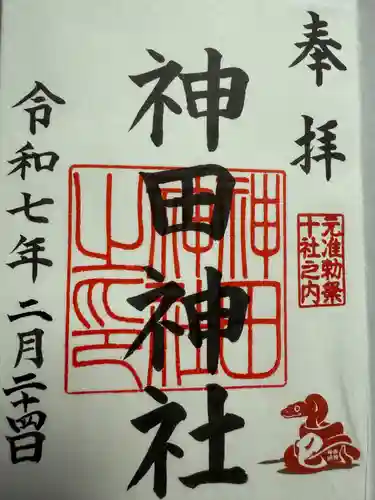 奉拝
元准勅祭
十社之内
神田神社
神田
神社
之印
令和七年二月二十四日
巳